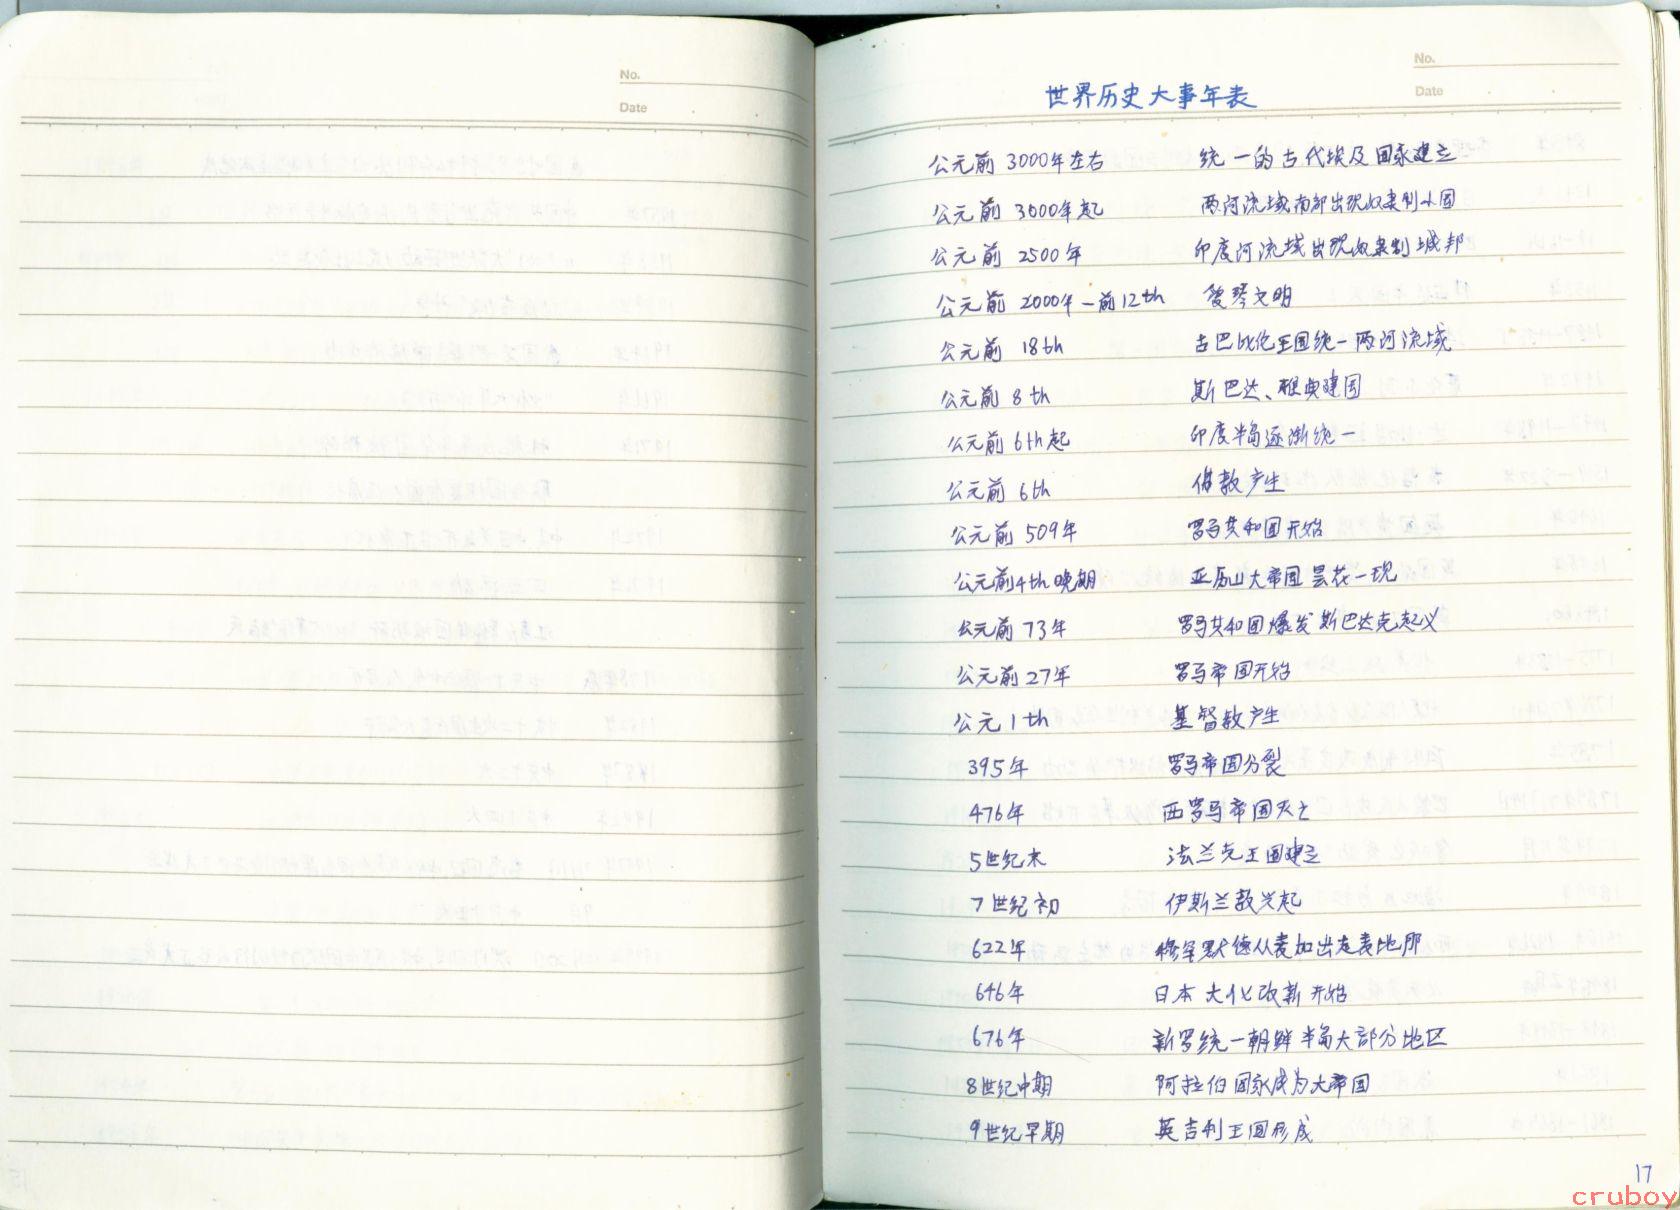 No.
Date
No.
Date
世界历史大事年表
公元前 3000年左右 统一的古代埃及国家建立
公元前 3000年起 两河流域南部出现奴隶制小国
公元前 2500年 印度河流域出现奴隶制城邦
公元前 2000年－前12th 爱琴文明
公元前 18th 古巴比伦王国统一两河流域
公元前 8th 斯巴达、雅典建国
公元前6th起 印度半岛逐渐统一
公元前 6th 佛教产生
公元前 509年 罗马共和国开始
公元前4th晚期 亚历山大帝国昙花一现
公元前 73年 罗马共和国爆发斯巴达克起义
公元前27年 罗马帝国开始
公元1th 基督教产生
395年 罗马帝国分裂
476年 西罗马帝国灭亡
5世纪末 法兰克王国建立
7世纪初 伊斯兰教兴起
622年 穆罕默德从麦加出走麦地那
646年 日本大化改新开始
676年 新罗统一朝鲜半岛大部分地区
8世纪中期 阿拉伯国家成为大帝国
9世纪早期 英吉利王国形成
17
cruboy